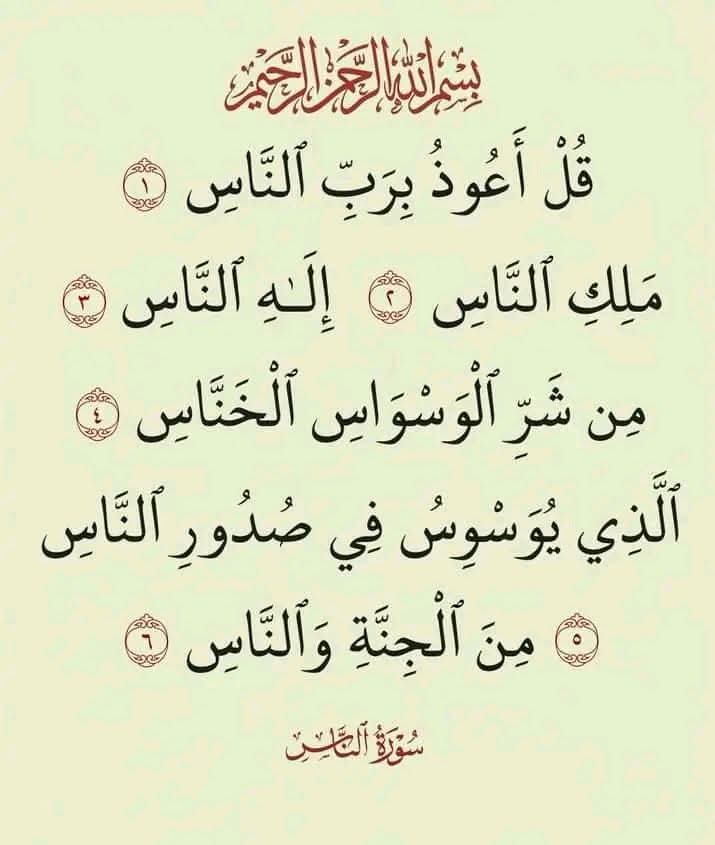 بِسْمِ اللهِ الرَّحْمٰنِ الرَّحِيْمِ
قُلْ أَعُوذُ بِرَبِّ ٱلنَّاسِ ١
مَلِكِ ٱلنَّاسِ ٢ إِلَـٰهِ ٱلنَّاسِ ٣
مِن شَرِّ ٱلْوَسْوَاسِ ٱلْخَنَّاسِ ٤
ٱلَّذِي يُوَسْوِسُ فِي صُدُورِ ٱلنَّاسِ
٥ مِنَ ٱلْجِنَّةِ وَٱلنَّاسِ ٦
سُوْرَةُ ٱلنَّاسِ